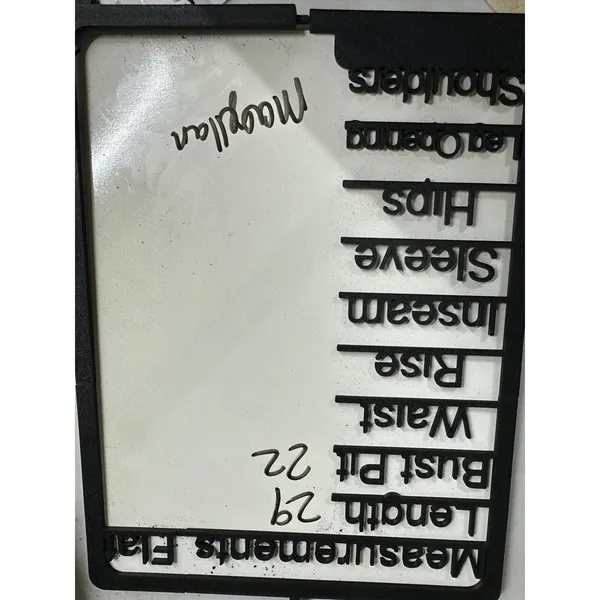 Measurements Flat
Length 29
Bust Pit 22
Waist
Rise
Inseam
Sleeve
Hips
Leg Opening
Shoulders
Magellan